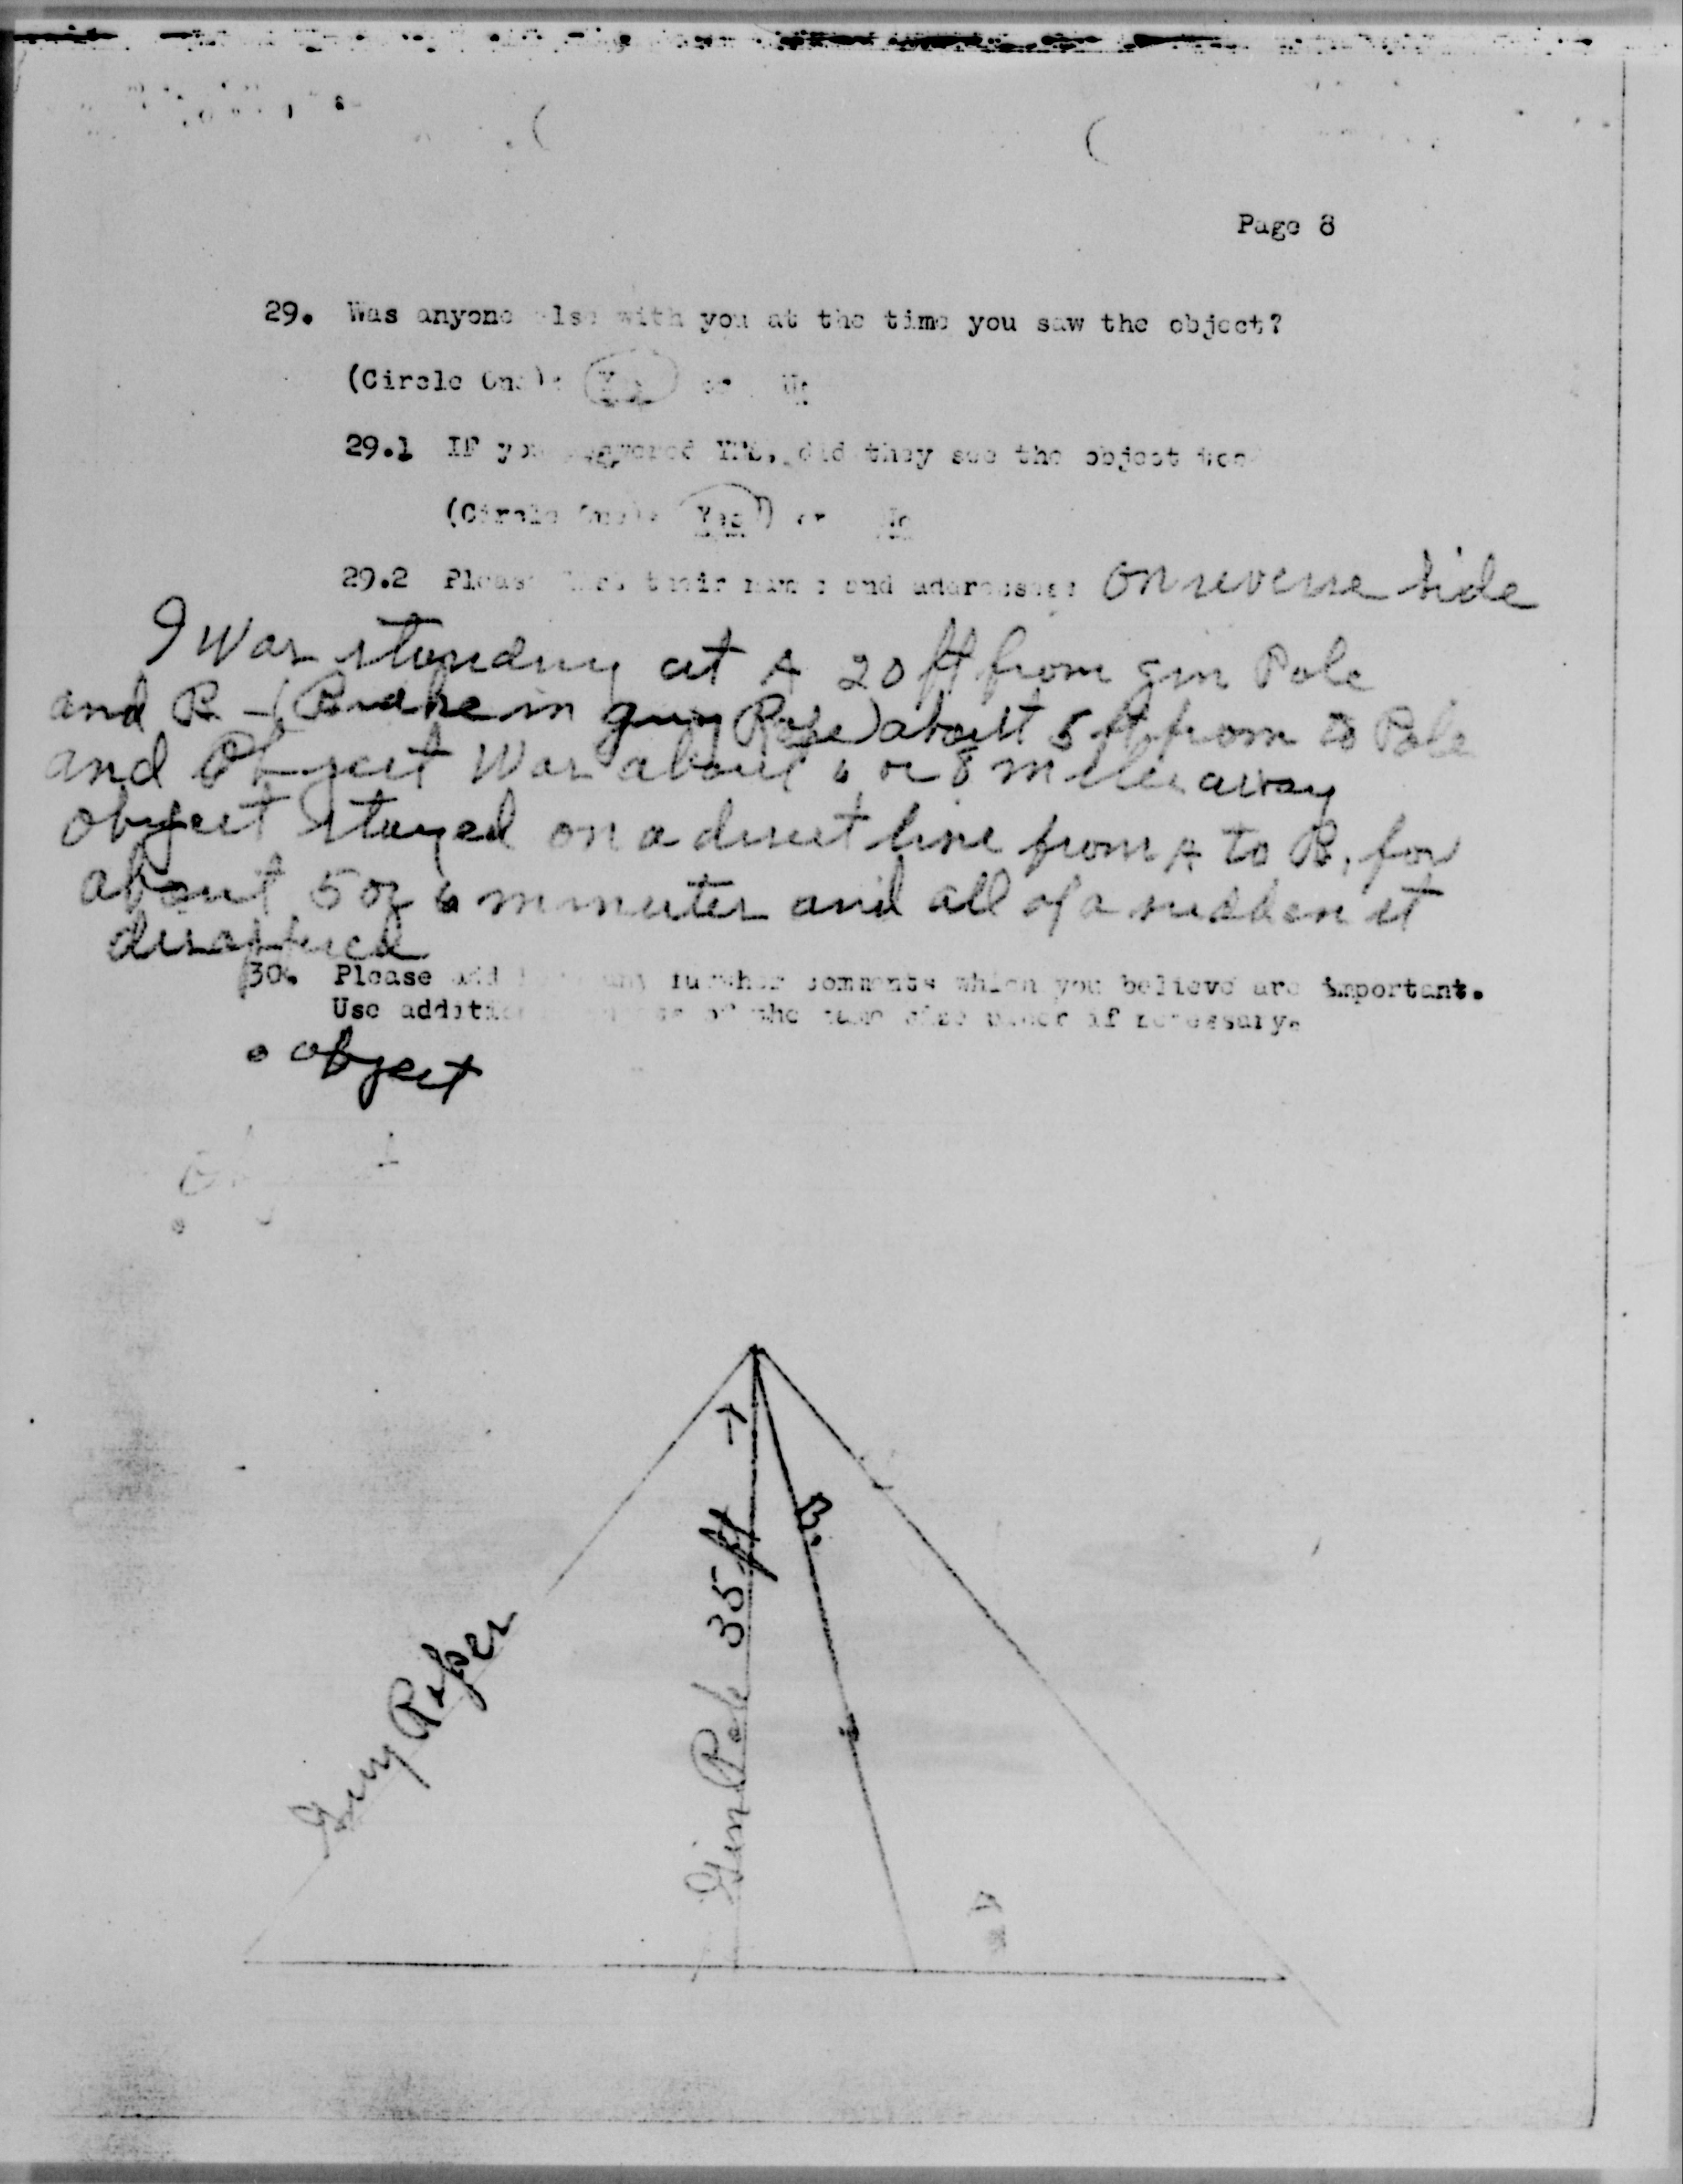 Page 8
29. Was anyone else with you at the time you saw the object?
(Circle One): Yes or No
29.1 IF you answered YES, did they see the object too?
(Circle One): Yes or No
29.2 Please list their names and addresses: on reverse side
I was standing at A 20 ft from gin Pole
and B - ( in guy Rope) about 5 ft from Pole
and Object was about 6 or 8 miles away
object stayed on a direct line from A to B, for
about 5 or 6 minutes and all of a sudden it
30. Please add here any further comments which you believe are important.
Use additional sheets of the same size paper if necessary.
object
B.
35 ft
Gin Pole
Guy Ropes
A